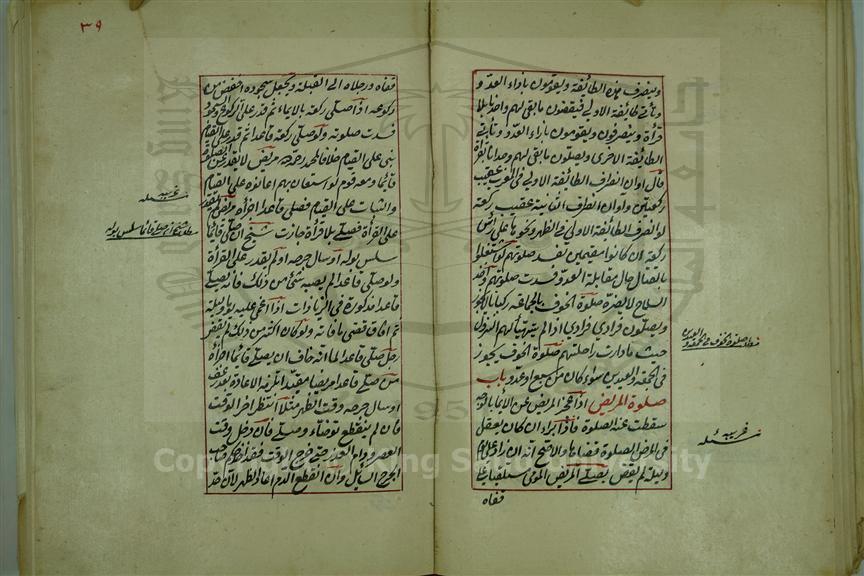 ٣٩
وينصرف هذه الطائفة ويقومون بازاء العدو و
تأتي طائفة الاولى فيقضون ما بقى لهم وحدانا بلا
قرأة وينصرفون ويقومون بازاء العدو وتأتي
الطائفة الاخرى ويصلون ما بقى لهم وحدانا بقرأة
قال اوان انصراف الطائفة الاولى في المغرب عقيب
ركعتين واوان انصراف الثانية عقيب ركعة
لو انصرف الطائفة الاولى في الظهر ونحوها على رأس
ركعة ان كانوا مقيمين تفسد صلوتهم لو اشتغلوا
بالقتال حال مقابلة العدو فسدت صلوتهم واخذ
السلاح لا يضره صلوة الخوف بالجماعة ركبانا لا يجوز
ويصلون فرادى فرادى اذا لم يتهيأ لهم النزول
حيث ما دارت راحلتهم صلوة الخوف يجوز
في الجمعة والعيدين سواء كان من سبع او عدو باب
صلوة المريض اذا عجز المريض عن الايماء بالرأس
سقطت عنه الصلوة فاذا برأ ان كان يعقل
في المرض الصلوة قضاها والاصح انه ان زاد على يوم
وليلة لم يقض يصلي المريض المومي مستلقيا على
قفاه
صلوة الخوف
غريبة
مسئله
قفاه ورجلاه الى القبلة ويجعل سجوده اخفض من
ركوعه اذا صلى ركعة بالايماء ثم قدر على الركوع والسجود
فسدت صلوته ولو صلى ركعة قاعدا ثم قدر على القيام
بنى على القيام خلافا لمحمد رحمه مريض لا يقدر على الصلوة
قائما ومعه قوم لو استعان بهم اعانوه على القيام
والثبات على القيام فصلى قاعدا اجزأه مريض لا يقدر
على القرأة فصلى بلا قرأة جازت شيخ ان صلى قائما
سلس بوله او سال جرحه او لم يقدر على القرأة
ولو صلى قاعدا لم يصبه شئ من ذلك فانه يصلي
قاعدا مذكورة في الزيادات اذا اغمي عليه يوما وليلة
ثم افاق قضى ما فاته ولو كان اكثر من ذلك لم يقض
رجل صلى قاعدا لما انه خاف ان يصلي قائما اجزأه
من صلى قاعدا مريضا مقيدا تلزمه الاعادة لو رعف
او سال جرحه وقت الظهر مثلا انتظر اخر الوقت
فان لم ينقطع توضأ وصلى فان دخل وقت
العصر ودام العذر حتى خرج الوقت فقد
الجرح السائل وان انقطع الدم اعاد الظهر لان
غريبة
مسئله
Copyright © King Saud University
1957